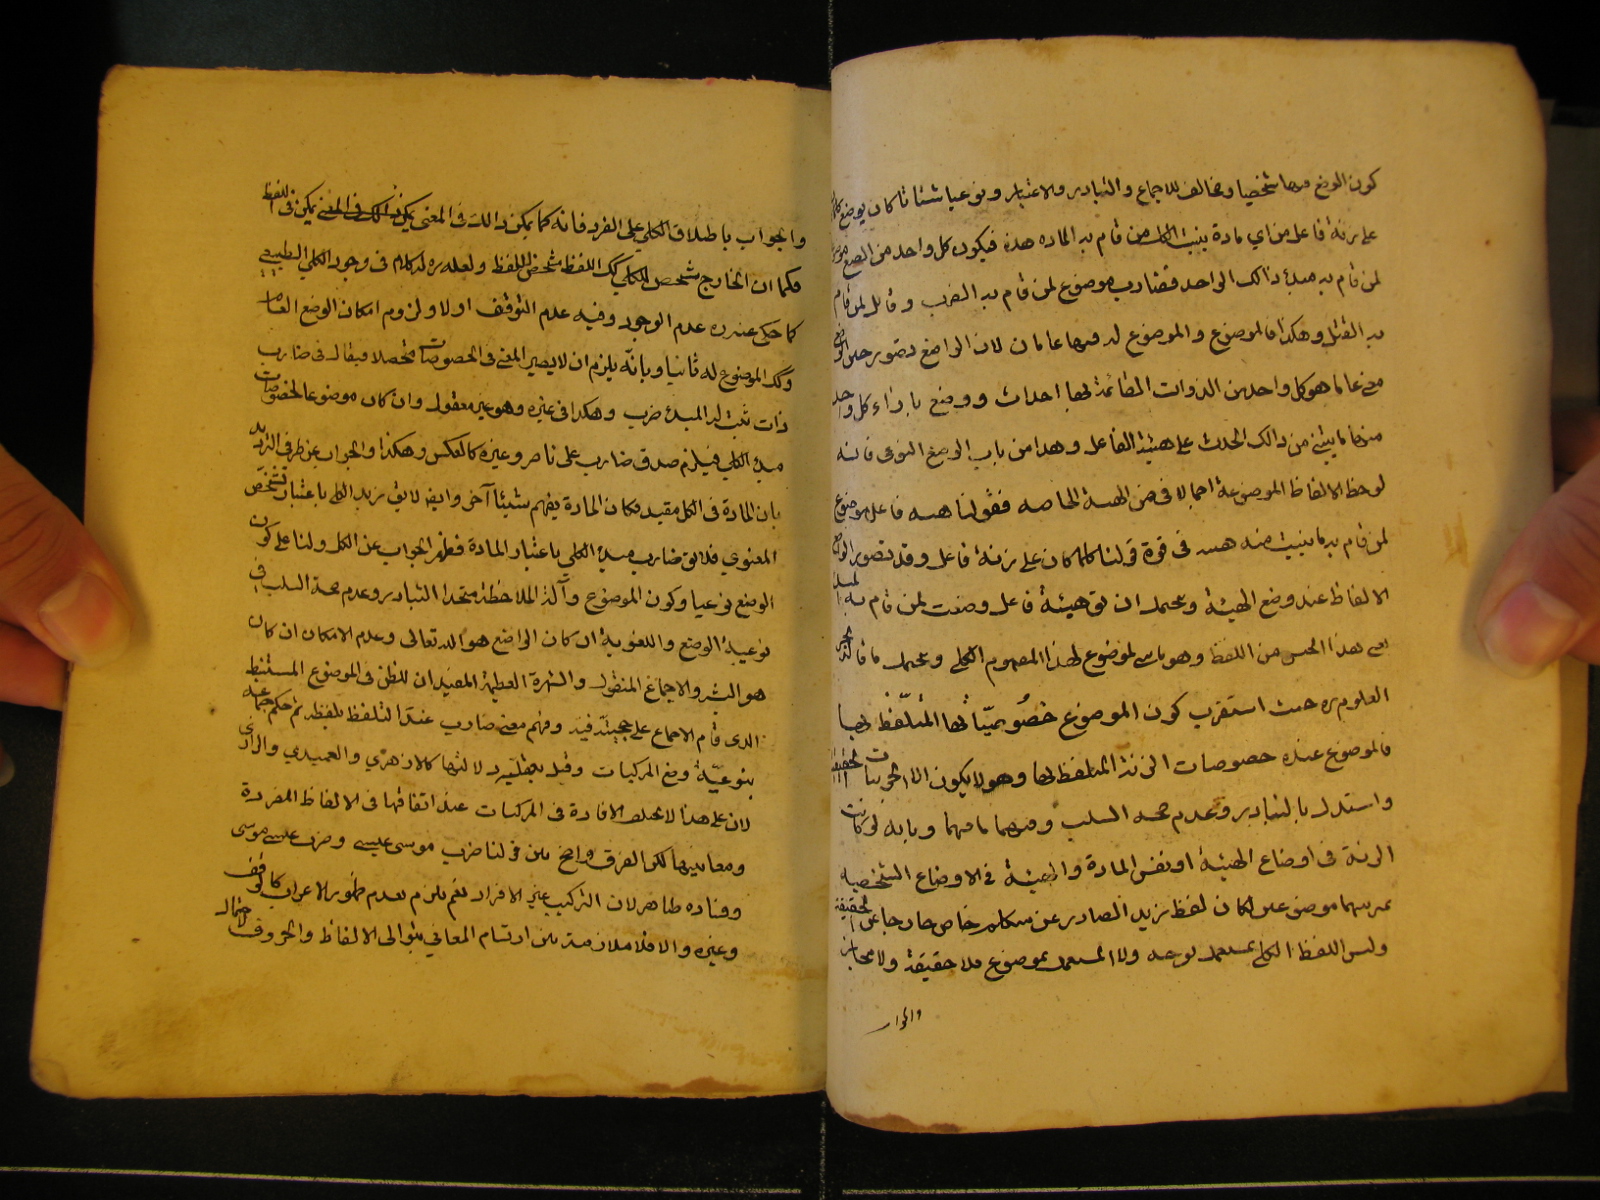 كون الوضع فيها شخصيا ومخالف للاجماع والتبادر والاعتبار ونوعيا شيئا كان يوضع كلما
على زنة فاعل من اي مادة بنيت لمن قام به المادة هذه فيكون كل واحد من الصيغ موضوع
لمن قام به مبدء ذالك الواحد فضارب موضوع لمن قام به الضرب وقاتل لمن قام
به القتل وهكذا فالموضوع والموضوع له فيها عامان لان الواضع تصور حين الوضع
معنى عاما هو كل واحد من الذوات القائمة بها احداث ووضع بازاء كل واحد
منها ما يبنى من ذالك الحدث على هيئة الفاعل وهذا من باب الوضع النوعى فانه
لوحظ الالفاظ الموضوعة اجمالا فى ضمن الهيئة الخاصه فقولنا هيئه فاعل موضوع
لمن قام به ما بنيت منه هيئه فى قوة قولنا كلما كان على زنة فاعل وقد تصور الواضع
الالفاظ عند وضع الهيئة ويحتمل ان هيئة فاعل وضعت لمن قام به المبدء
يعنى هذا الجنس من اللفظ وهو موضوع لهذا المفهوم الكلى ويحتمل ما قاله بحر
العلوم ره حيث استقرب كون الموضوع خصوصيّاتها المتلفّظ بها
فالموضوع عنده خصوصات الزنة المتلفظ بها وهو لا يكون الا الجزئيات الحقيقية
واستدل بالتبادر وعدم صحه السلب وفيهما ما فيهما وبانه لو كانت
الزنة فى اوضاع الهيئة او نفس المادة والهيئة فى الاوضاع الشخصيه
موضوعين لكان لفظ زيد الصادر عن متكلم خاص خارجا عن الحقيقة
وليس اللفظ الكلى بمستعمل بوجه ولا المستعمل بموضوع فلا حقيقة ولا مجاز
والجواب
والجواب باطلاق الكلى على الفرد فانه كما يمكن ذالك فى المعنى يمكن فى اللفظ
فكما ان الخارج شخص الكلى كك اللفظ شخص اللفظ ولعله ره له كلام فى وجود الكلى الطبيعي
كما حكى عنه ره عدم الوجود وفيه عدم التوقف اولا ولزوم امكان الوضع العام
وكك الموضوع له ثانيا وبانّه يلزم ان لا يصير المعنى فى الخصوصات محصلا فيقال فى ضارب
ذات ثبت له المبدء ضرب وهكذا فى غيره وهو غير معقول وان كان موضوعا لخصوصات
مبدء الكلى فيلزم صدق ضارب على ناصر وغيره كالعكس وهكذا والجواب عن طرفى الترديد
بان المادة فى الكل مقيد فكان المادة يفهم شيئا آخر وايض لا يق زيد الكلى باعتبار تشخّص
المعنوي فلا يق ضارب مبدء الكلى باعتبار المادة فظهر الجواب عن الكل ولنا على كون
الوضع نوعيا وكون الموضوع وآلة الملاحظة متحدا التبادر وعدم صحة السلب فى
نوعية الوضع واللغوية ان كان الواضع هو الله تعالى وعدم الامكان ان كان
هو البشر والاجماع المنقول والشهرة العظيمة المفيدان للظن فى الموضوع المستنبط
الذى قام الاجماع على حجيته فيه وفهم معنى ضارب عند التلفظ بلفظه ثم حكم جماعة
بنوعيّة وضع المركبات وقيل بعقليّه دلالتها كالازهري والعميدي والرازى
لان على هذا لا يختلف الافادة فى المركبات عند اتفاقها فى الالفاظ المفردة
ومعانيها لكن الفرق واضح بين قولنا ضرب موسى عيسى وضرب عيسى موسى
وفساده ظاهر لان التركيب غير الافراد نعم يلزم بعدم ظهور الاعراب كالوقف
وغيره والا فلا ملازمة بين ارتسام المعانى بتوالى الالفاظ والحروف لاحتمال